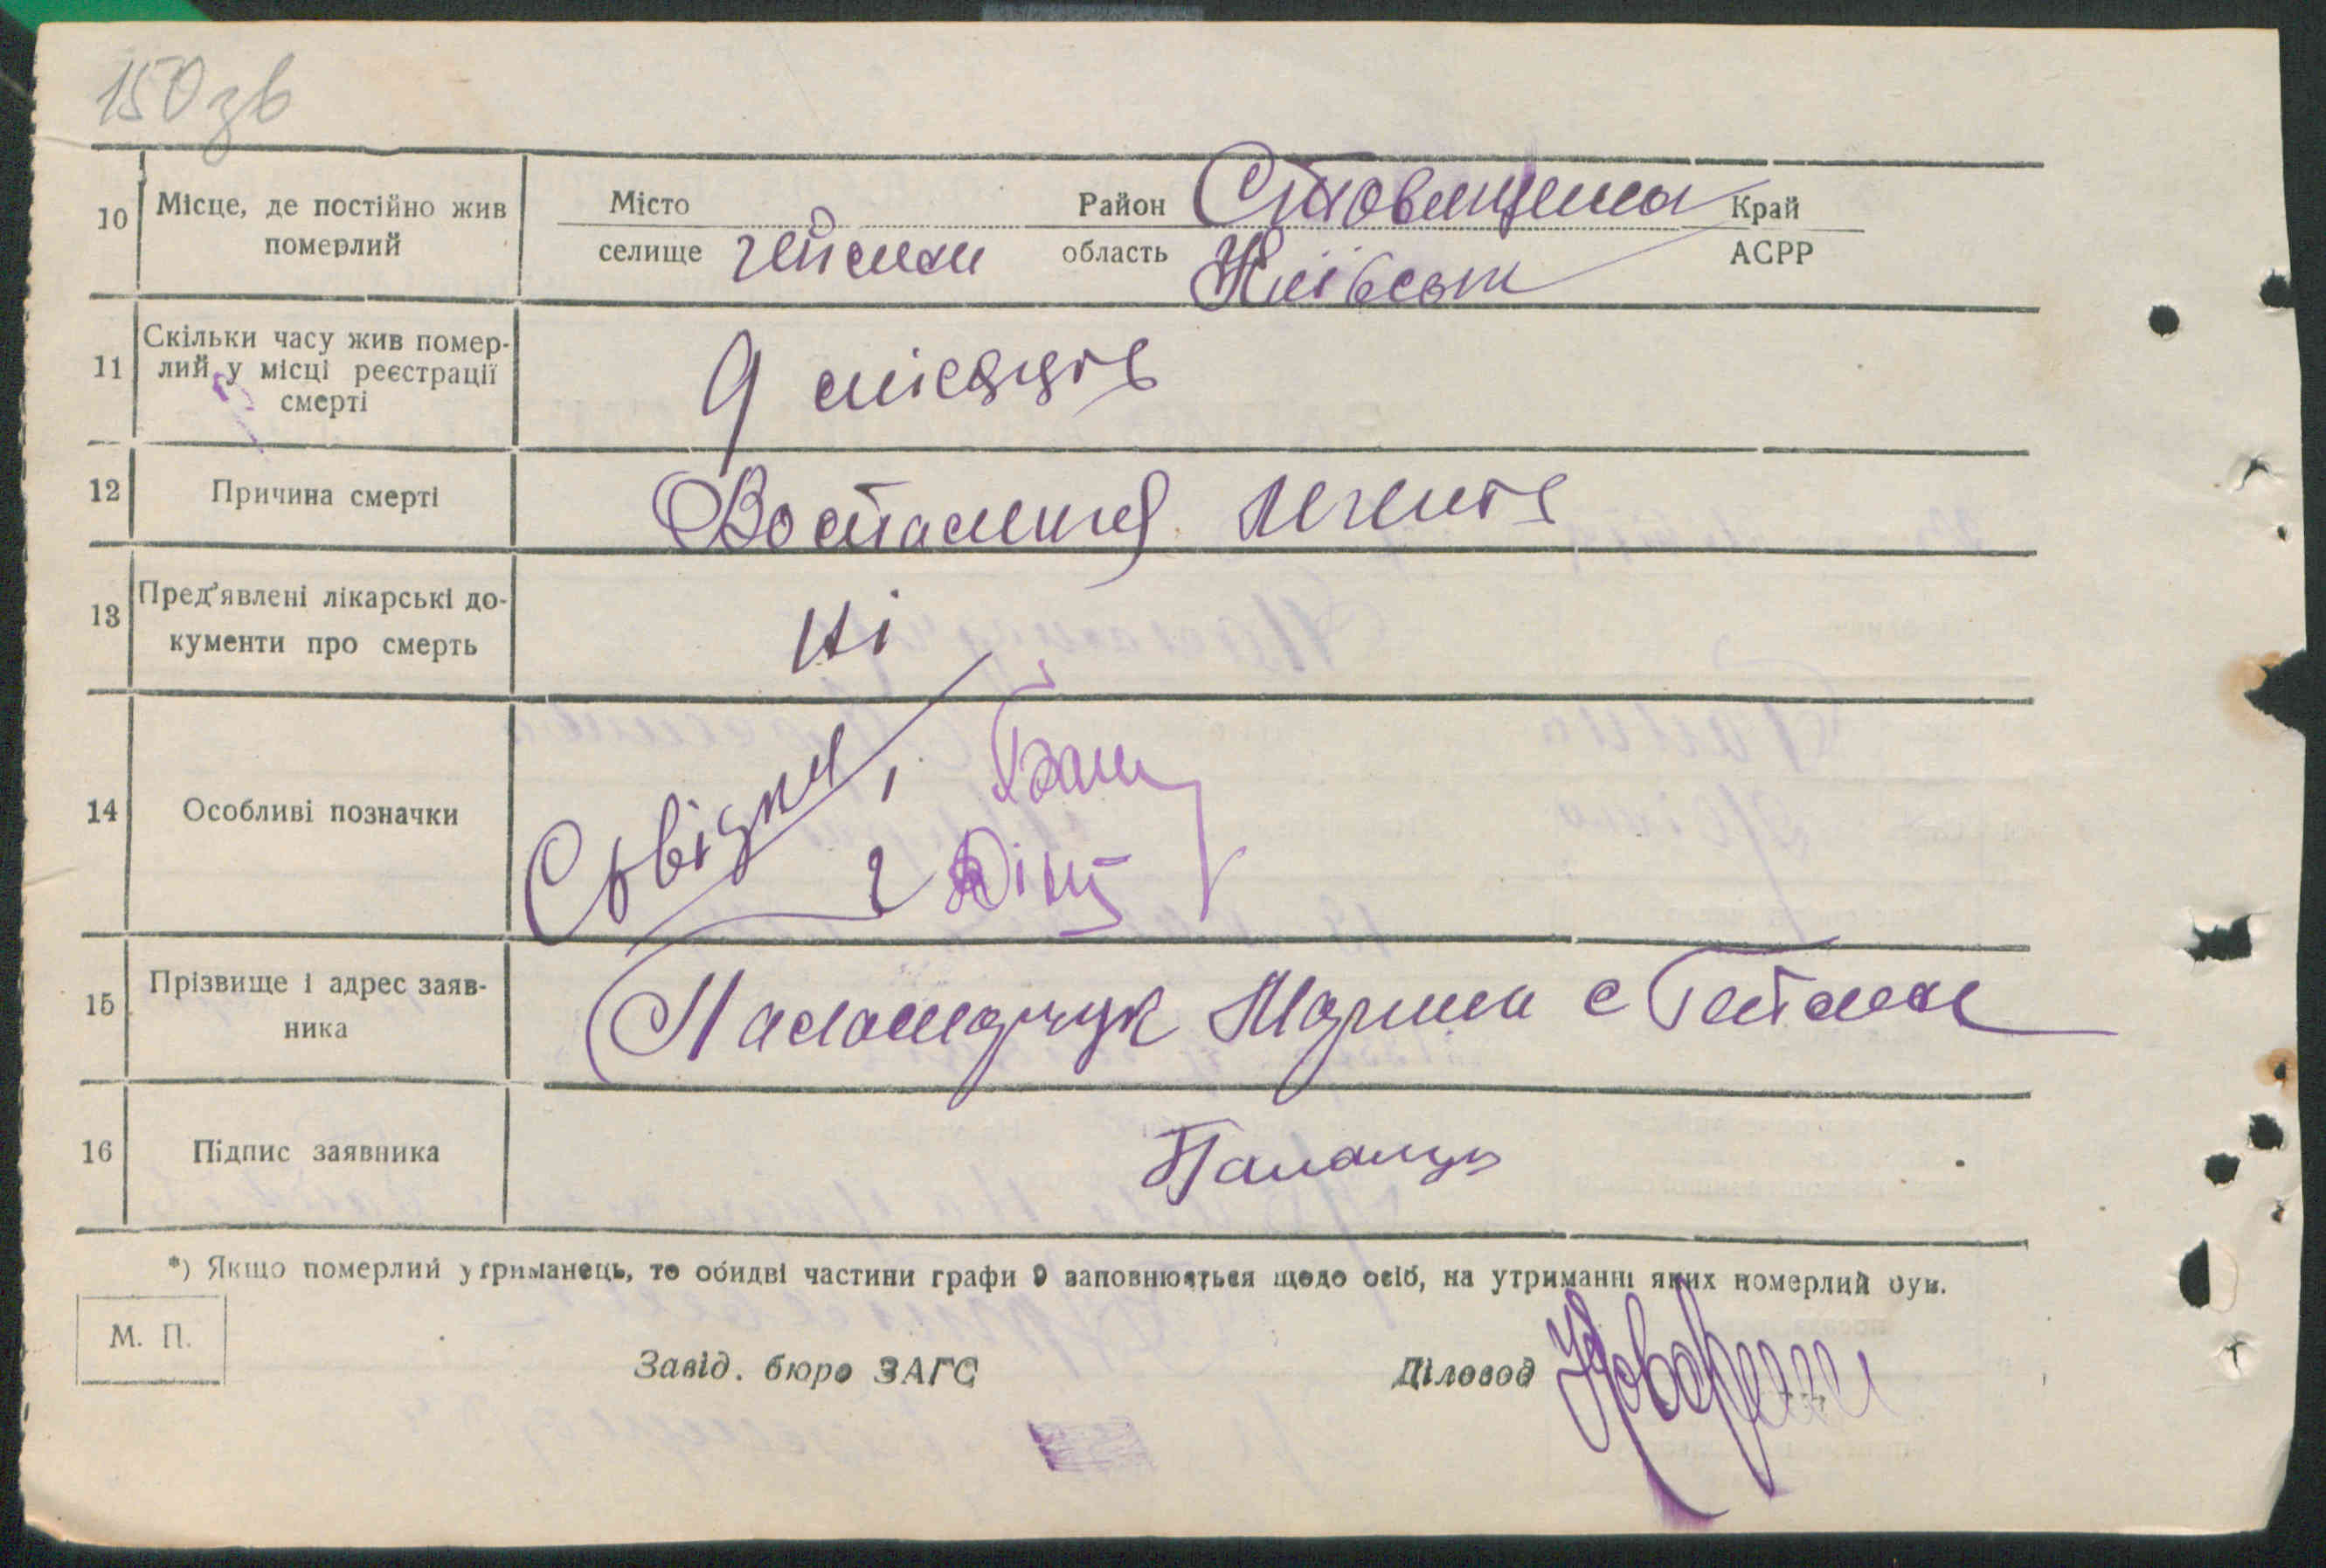 150 зв
10 Місце, де постійно жив померлий
Місто Район Ставищена Край
селище гейсихи область Київськ АСРР
11 Скільки часу жив помер-
лий у місці реєстрації
смерті
9 місяців
12 Причина смерті
Воспаление легких
13 Пред'явлені лікарські до-
кументи про смерть
ні
14 Особливі позначки
Свідки 1
2
15 Прізвище і адрес заяв-
ника
Паламарчук Марина с Гейсихи
16 Підпис заявника
*) Якщо померлий утриманець, то обидві частини графи 9 заповнюються щодо осіб, на утриманні яких померлий був.
М. П.
Завід. бюро ЗАГС Діловод